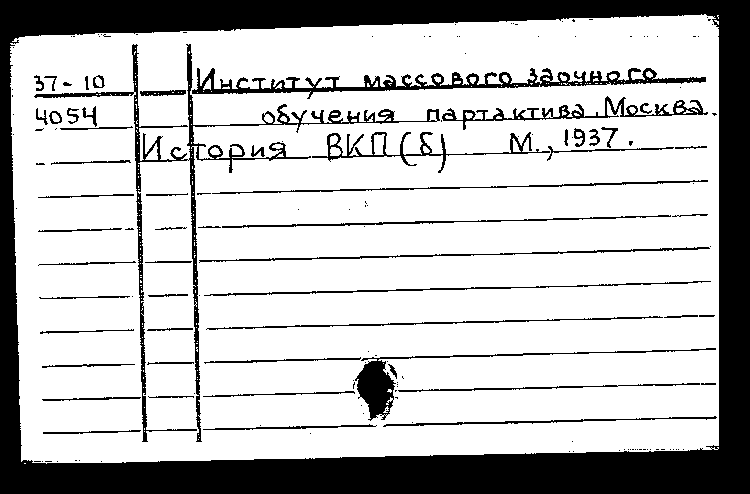 37-10 Институт массового заочного
4054 обучения партактива. Москва.
История ВКП(б) М., 1937.